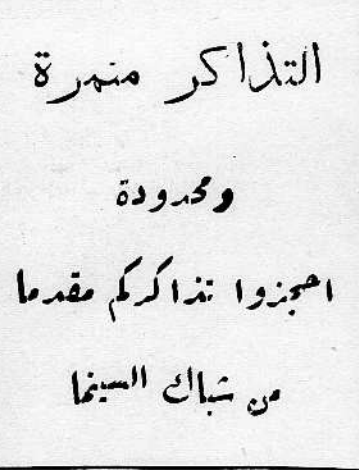 التذاكر منمرة
ومحدودة
احجزوا تذاكركم مقدما
من شباك السينما